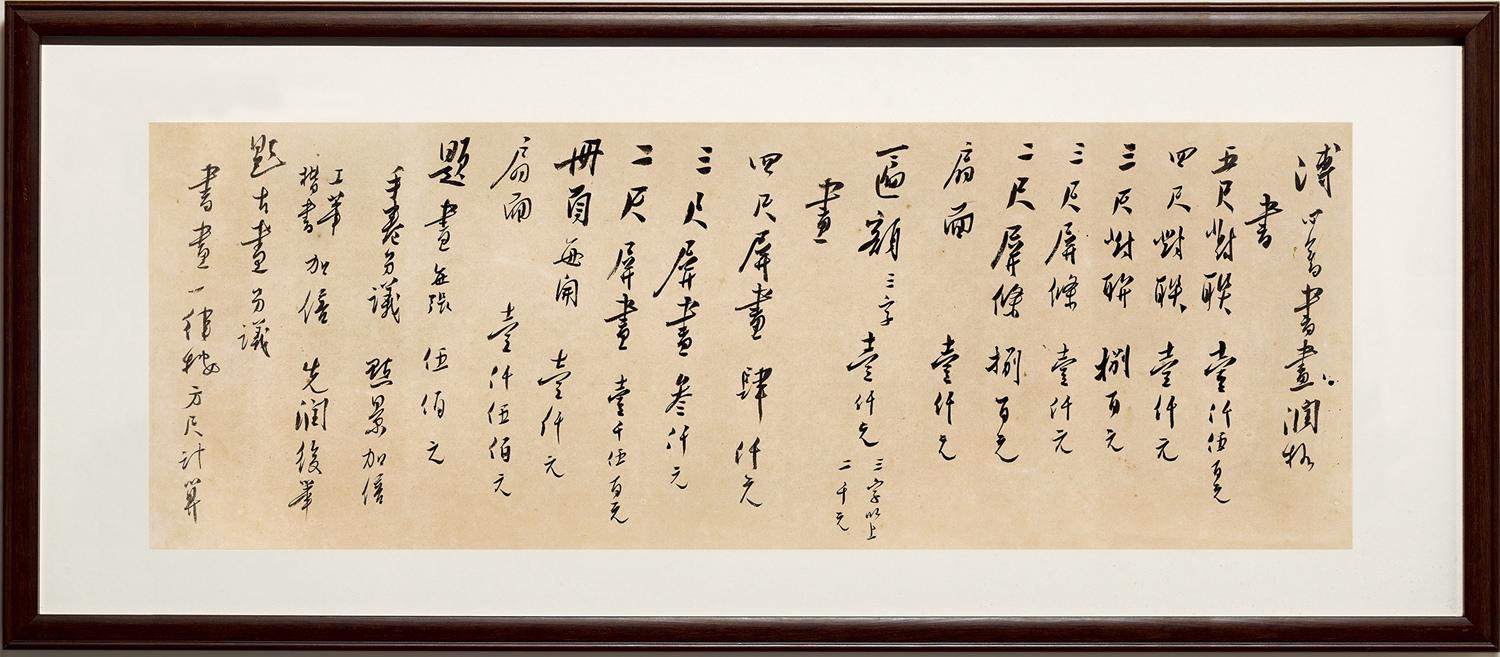 溥心畬書畫潤格
書
五尺對聯 壹仟伍百元
四尺對聯 壹仟元
三尺對聯 捌百元
三尺屏條 壹仟元
二尺屏條 捌百元
扇面 壹仟元
匾額 三字 壹仟元 三字以上 二千元
畫
四尺屏畫 肆仟元
三尺屏畫 叁仟元
二尺屏畫 壹千伍百元
冊頁 每開 壹仟元
扇面 壹仟伍佰元
題畫 每張 伍佰元
手卷另議 點景加倍
工筆 楷書 加倍 先潤後筆
題古畫另議
書畫一律按方尺計算